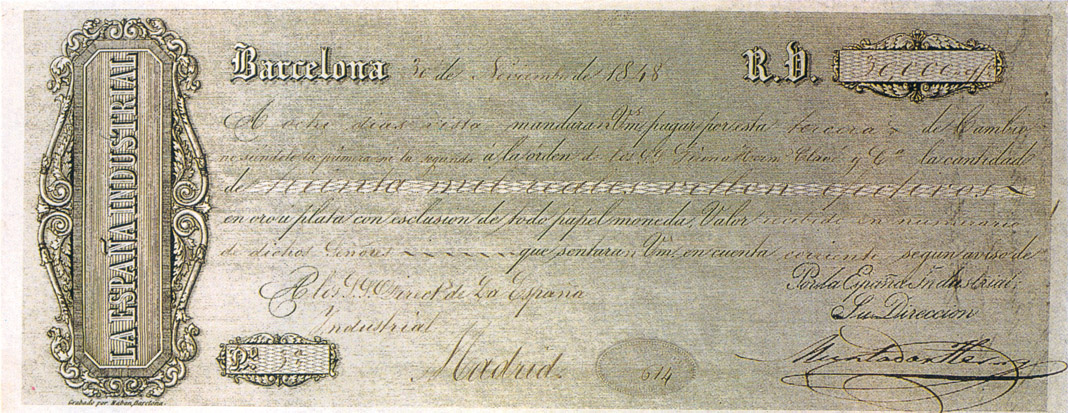 LA ESPAÑA INDUSTRIAL
Barcelona 30 de Noviembre de 1848 R.V. 30,000
A ocho dias vista mandaran Vms. pagar por esta tercera de Cambio
no siendolo la primera ni la segunda á la órden de los Srs. y Ca. la cantidad
de treinta mil reales vellon efectivos
en oro u plata con esclusion de todo papel moneda, Valor recibido en numerario
de dichos Señores que sentaran Vms. en cuenta corriente segun aviso de
A los S.S. Direct. de La España
Industrial
Por la España Industrial,
Su Direccion
No.
Madrid.
614
Grabado por Mabon, Barcelona.